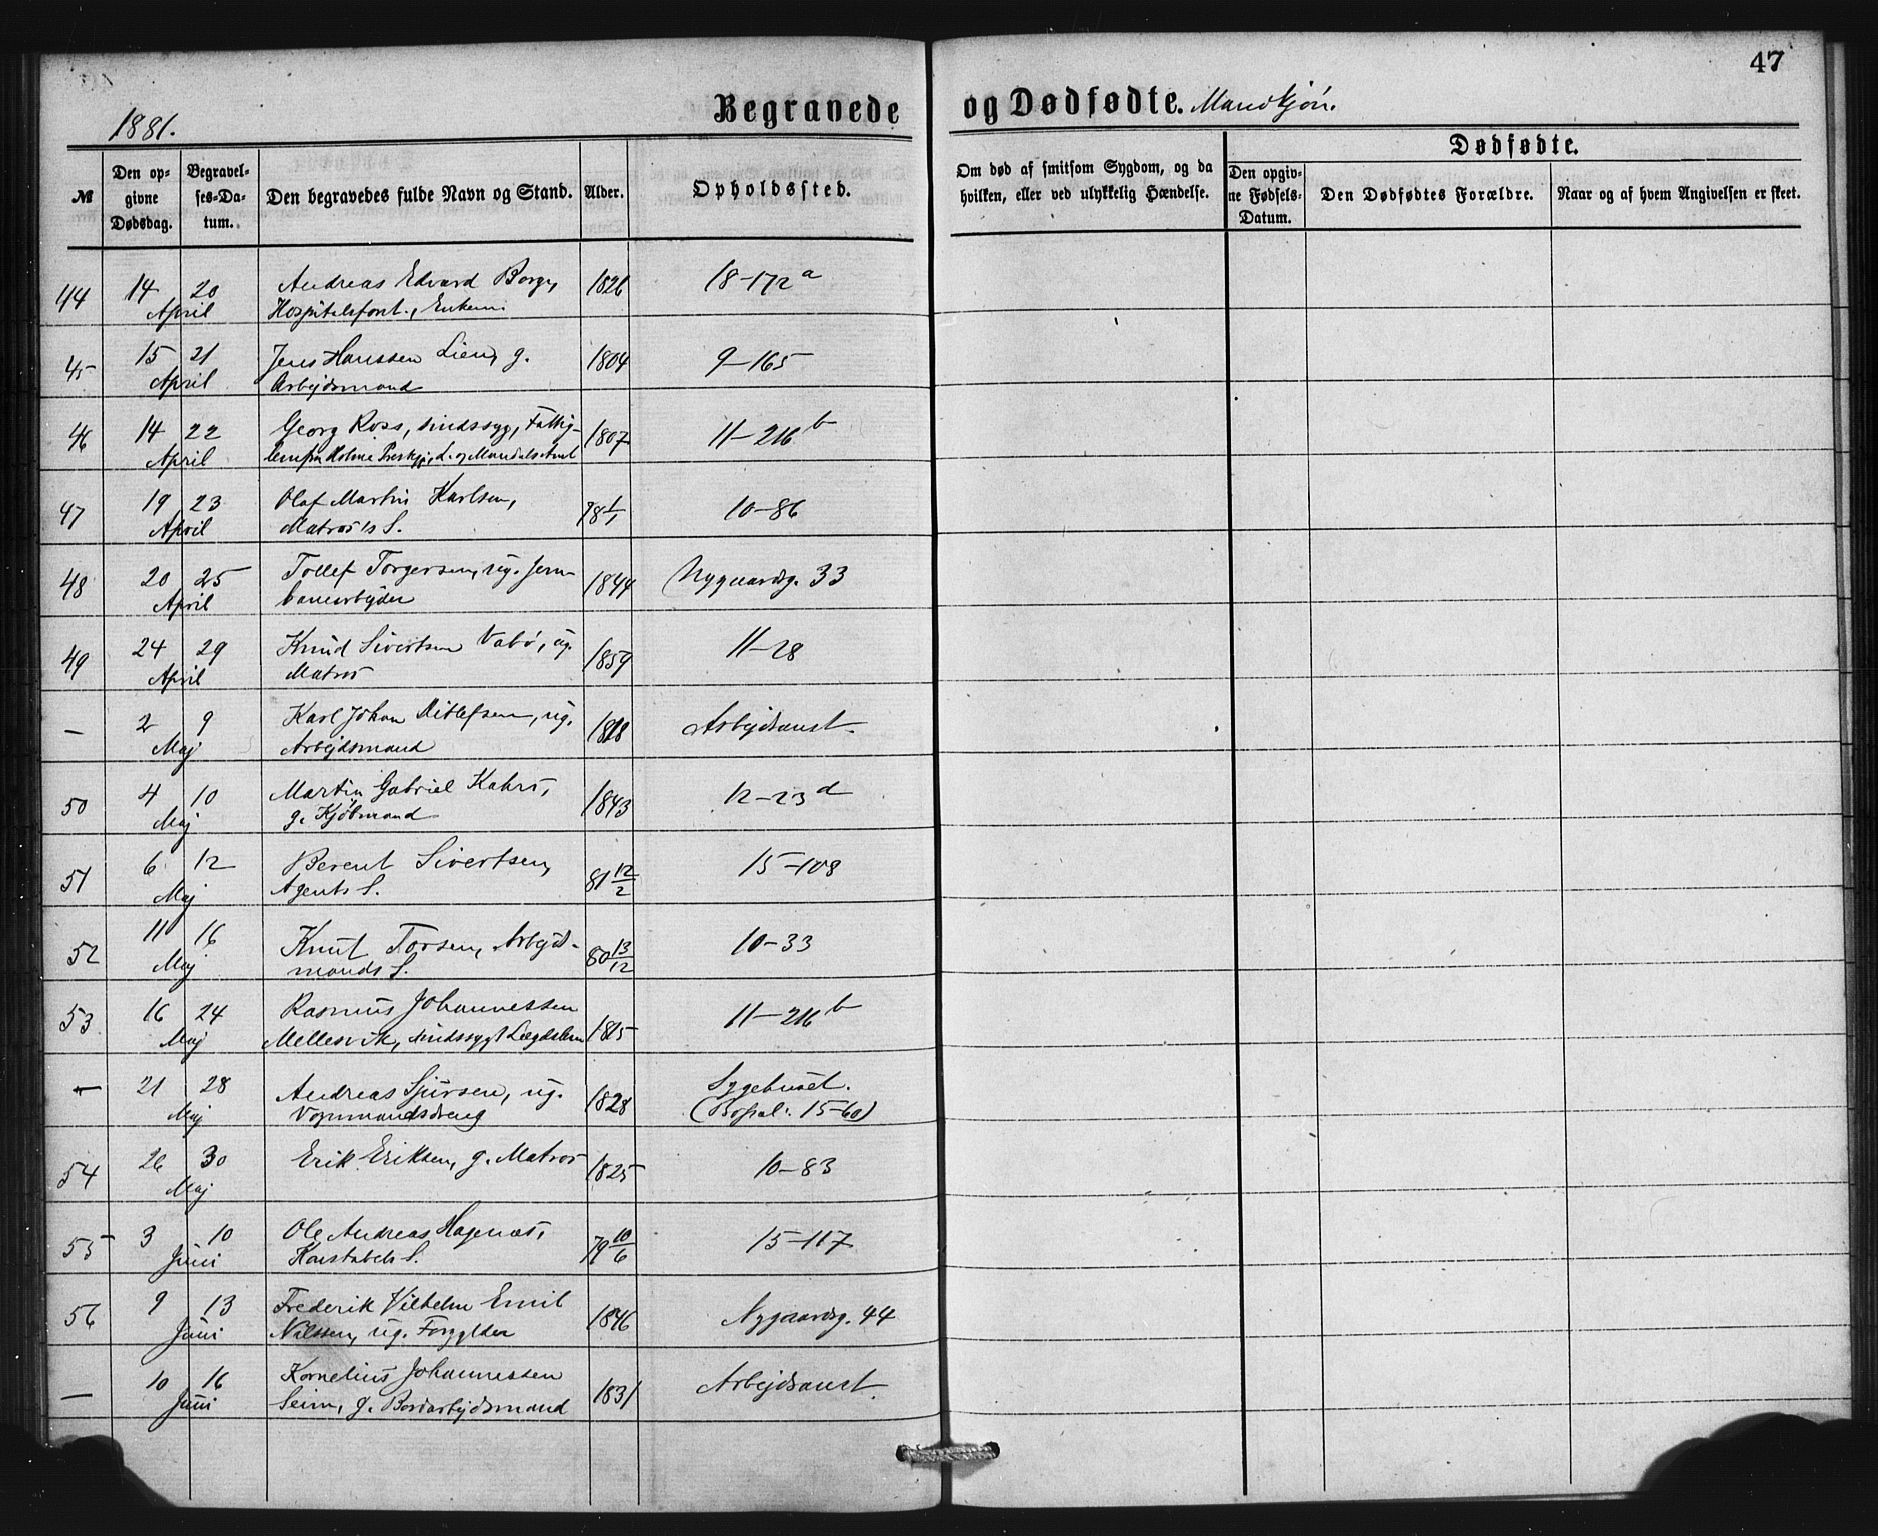 47
1881.
Begravede og Dødfødte. Mandkjøn.
№
Den opgivne Dødsdag.
Begravelses-Datum.
Den begravedes fulde Navn og Stand.
Alder.
Opholdssted.
Om død af smitsom Sygdom, og da hvilken, eller ved ulykkelig Hændelse.
Dødfødte.
Den opgivne Fødsels-Datum.
Den Dødfødtes Forældre.
Naar og af hvem Angivelsen er skeet.
44 14 20 Andreas Edvard Borge, 1826 18-172a
April Hospitalsforst., Enkem.
45 15 21 Jens Hanssen Lien, g. 1804 9-165
April Arbejdsmand
46 14 22 Georg Ross, sindssyg, Fattig- 1807 11-216b
April lem fra Holme Prestgj., L. og Mandals Amt
47 19 23 Olaf Martin Karlsen, 78 1/1 10-86
April Matros's S.
48 20 25 Tollef Torgersen, ug. Jern- 1844 Nygaardsg. 33
April banearbejder
49 24 29 Knud Sivertsen Vabø, ug. 1859 11-28
April Matros
— 2 9 Karl Johan Ditlefsen, ug. 1818 Arbejdsanst.
Maj Arbejdsmand
50 4 10 Martin Gabriel Kahrs, 1843 12-23d
Maj g. Kjøbmand
51 6 12 Berent Sivertsen, 81 12/2 15-108
Maj Agents S.
52 11 16 Knut Torsen, Arbejds- 80 13/12 10-33
Maj mands S.
53 16 24 Rasmus Johannessen 1815 11-216b
Maj Mellesvik, sindssygt Lægdslem
— 21 28 Andreas Sjursen, ug. 1828 Sygehuset.
Maj Vognmandsdreng (Bopæl: 15-60)
54 26 30 Erik Eriksen, g. Matros 1825 10-83
Maj
55 3 10 Ole Andreas Hagenæs, 79 10/6 15-117
Juni Konstabels S.
56 9 13 Frederik Vilhelm Emil 1846 Nygaardsg. 44
Juni Nilssen, ug. Forgylder
— 10 16 Kornelius Johannessen 1831 Arbejdsanst.
Juni Seim, g. Bordarbejdsmand